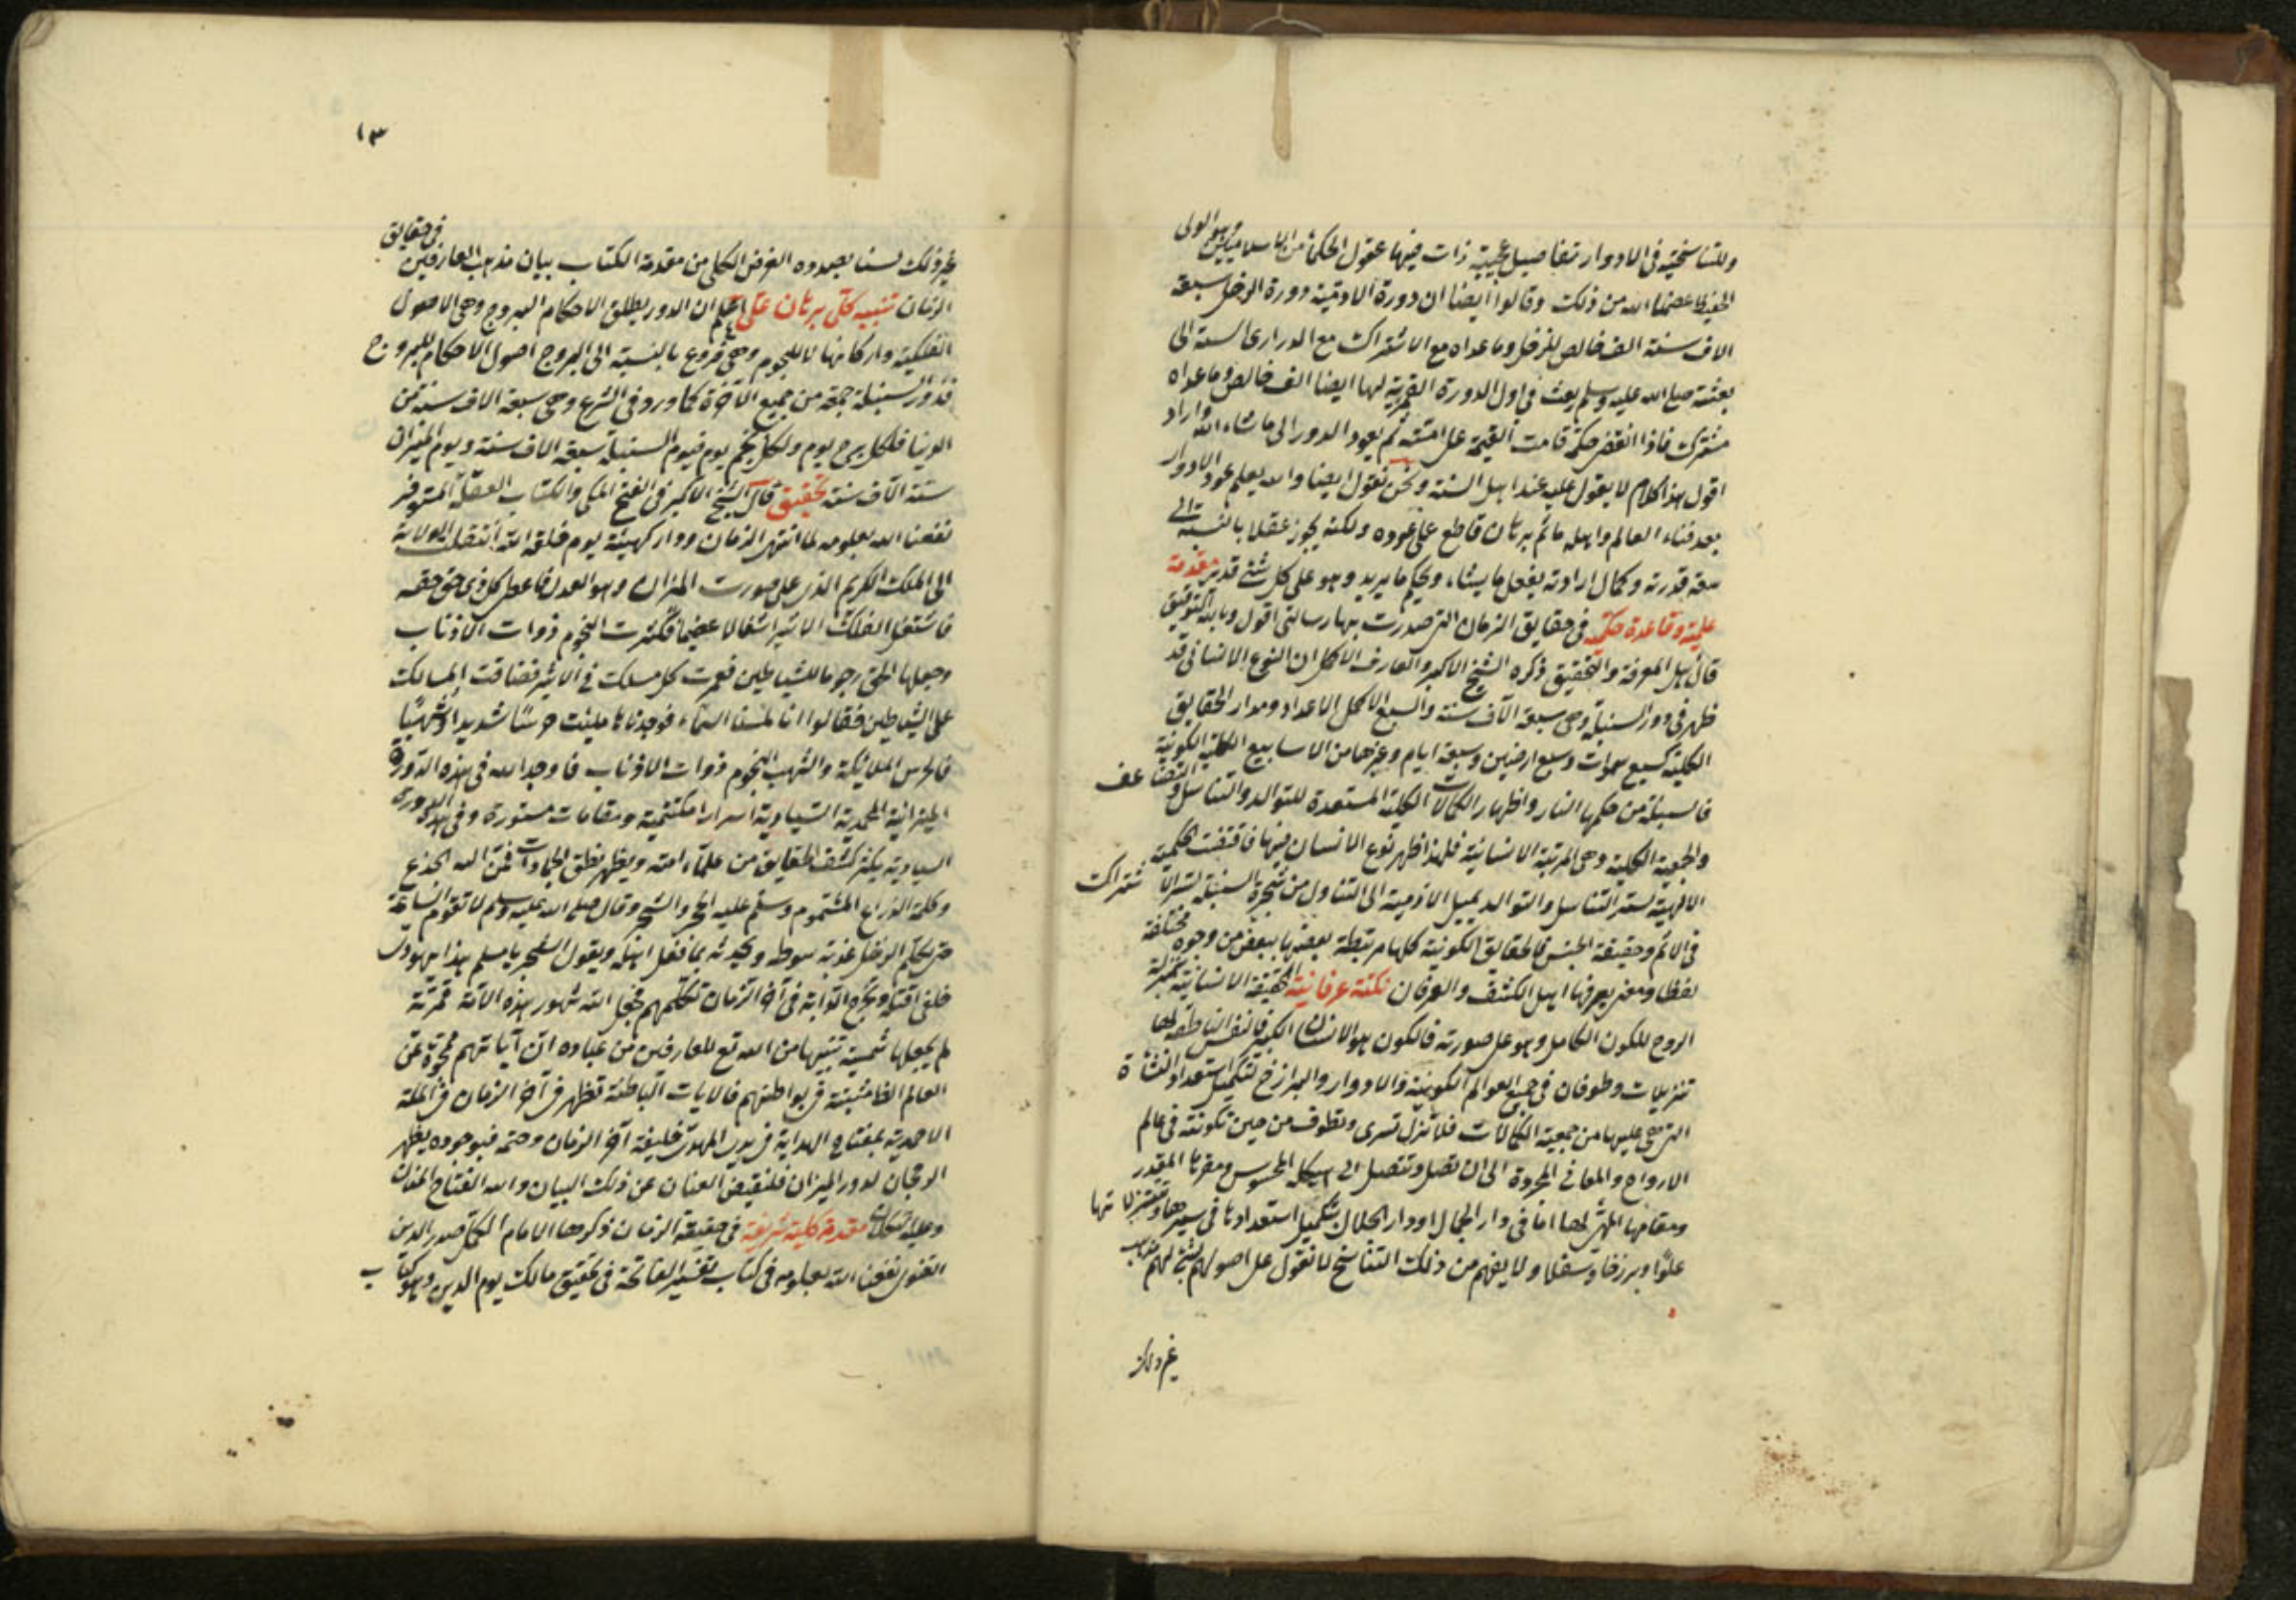 وللتناسخية في الادوار تفاصيل عجيبة ذات فيها عقول الحكماء من الاسلاميين وهو الولى
الحفيظ عصمنا الله من ذلك وقالوا ايضا ان دورة الادمية دورة الزحل سبعة
الاف سنة الف خالص لزحل وما عداه مع الاشتراك مع الدرارى الستة الى
بعثته صلى الله عليه وسلم بعث في اول الدورة القمرية لها ايضا الف خالص وما عداه
مشترك فاذا انقضى حكمه قامت القيمة على امته ثم يعود الدور الى ما شاء الله واراد
اقول هذا كلام لا يعول عليه عند اهل السنة ونحن نقول ايضا والله يعلم عود الادوار
بعد فناء العالم واهله ما ثم برهان قاطع على عوده ولكنه يجوز عقلا بالنسبة الى
سعة قدرته وكمال ارادته يفعل ما يشاء ويحكم ما يريد وهو على كل شئ قدير مقدمة
علمية وقاعدة حكمية في حقايق الزمان التى صدرت بها رسالتى اقول وبالله التوفيق
قال اهل المعرفة والتحقيق ذكره الشيخ الاكبر والعارف الاكمل ان النوع الانسانى قد
ظهر في دور السنبلة وهى سبعة آلاف سنة والسبع لاكمل الاعداد ومدار الحقايق
الكلية كسبع سموات وسبع ارضين وسبعة ايام وغيرها من الاسابيع الكلية الكونية
فالسنبلة من حكمها النار واظهار الكمالات الكلية المستعدة للتوالد والتناسل والتضاعف
والجمعية الكلية وهى المرتبة الانسانية فلهذا ظهر نوع الانسان فيها فاقتضت الحكمة
الالهية لستر التناسل والتوالد بميل الادمية الى التناول من شجرة السنبلة لستر الاشتراك
في الاثم وحقيقة الجنس فالحقايق الكونية كلها مرتبطة بعضها ببعض من وجوه مختلفة
لفظا ومعنى يعرفها اهل الكشف والعرفان نكتة عرفانية الحقيقة الانسانية بمنزلة
الروح للكون الكامل وهو على صورته فالكون هو الانسان الكبير فالنفس الناطقة لها
تنزيلات وطوفان في جميع العوالم الكونية والادوار والبرازخ لتكميل استعداد النشأة
التى هى عليها من جمعية الكمالات فلا تزل تسرى وتطوف من حين تكونته في عالم
الارواح والمعانى المجردة الى ان تصل وتتصل الى هيكله المحسوس ومقرها المقدر
ومقامها المهئ لها اما في دار الجمال او دار الجلال بتكميل استعدادها في سيرها وتنزلاتها
علوا وبرزخا وسفلا ولا يفهم من ذلك التناسخ لا نقول على اصولهم شئ لهم
غير ذلك
١٣
غير ذلك لسنا بصدده الغرض الكلى من مقدمة الكتاب بيان مذهب العارفين في حقايق
الزمان تنبيه كلى برهان على اعلم ان الدور يطلق الاحكام البروج وهى الاصول
الفلكية واركانها لا للنجوم وهى فروع بالنسبة الى البروج اصول الاحكام للبروج
فدور السنبلة جمعة من جميع الآخرة كما ورد في الشرع وهى سبعة الاف سنة من
الدنيا فلكل برج يوم ولكل نجم يوم فيوم السنبلة سبعة الاف سنة ويوم الميزان
ستة الاف سنة تحقيق قال الشيخ الاكبر في الفتح المكى والكتاب العقلة المستوفز
نفعنا الله بعلومه لما انتهى الزمان ودار كهيئة يوم خلقه الله انتقلت الولاية
الى الملك الكريم الذى على صورت الميزان وهو العدل فاعطى كل ذى حق حقه
فاشتعل الفلك الاثير اشعالا عظيما فكثرت النجوم ذوات الاذناب
وجعلها الحق رجوما للشياطين فعمرت كل مسلك في الاثير فضاقت المسالك
على الشياطين فقالوا انا لمسنا السماء فوجدناها ملئت حرسا شديدا وشهبا
فالحرس الملائكة والشهب النجوم ذوات الاذناب فاوجد الله في هذه الدورة
الميزانية المحمدية السيادية اسرارا مكتتمة ومقامات مستورة وفى هذه الدورة
السيادية يكثر كشف الحقايق من علماء امته ويظهر نطق الجمادات فحن اليه الجذع
وكلمه الذراع المسموم وسلم عليه الحجر والشجر وقال صلى الله عليه وسلم لا تقوم الساعة
حتى يكلم الرجل عذبة سوطه ويحدثه بما فعل اهله ويقول الشجر يا مسلم هذا يهودى
خلفى اقتله ويخرج الدابة في آخر الزمان تكلمهم فجعل الله شهور هذه الامة قمرية
لم يجعلها شمسية تنبيها من الله تع للعارفين من عباده ان آياتهم محجوة عن
العالم الظاهر مثبتة في بواطنهم فالايات الباطنة تظهر في آخر الزمان في الملة
الاحمدية بمفتاح الهداية في يد المهدى خليفة آخر الزمان وختمه فبوجوده يظهر
الرجحان لدور الميزان فلنقبض العنان عن ذلك البيان والله الفتاح المنان
وعليه التكلان مقدمة كلية شريفة في حقيقة الزمان ذكرها الامام المكمل صدر الدين
القنوى نفعنا الله بعلومه في كتاب تفسير الفاتحة في تحقيق مالك يوم الدين وهو كتاب